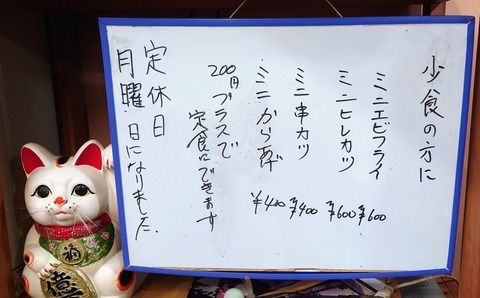 少食の方に
ミニエビフライ ¥600
ミニヒレカツ ¥600
ミニ串カツ ¥400
ミニから揚げ ¥400
200円プラスで
定食にできます
定休日
月曜日になりました.
福
億